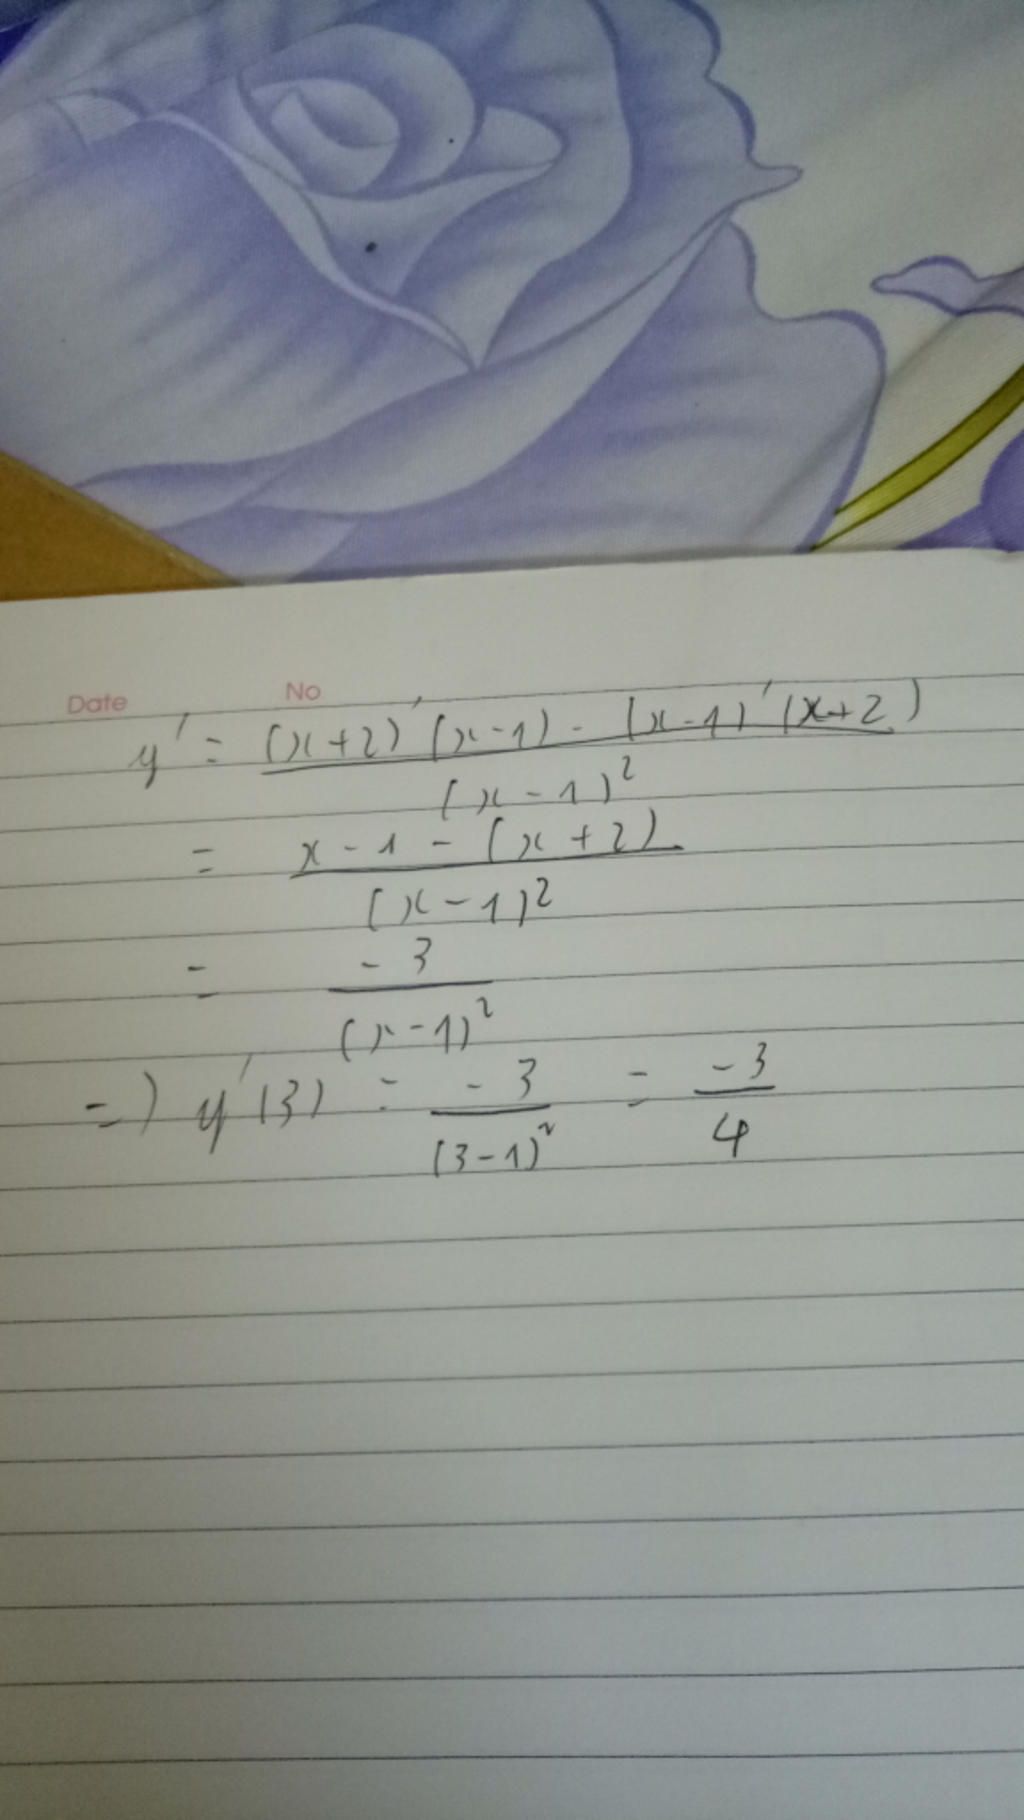 Date No
y' = (x+2)'(x-1) - (x-1)'(x+2)
(x-1)²
= x-1-(x+2)
(x-1)²
= -3
(x-1)²
=) y'(3) = -3 = -3
(3-1)² 4